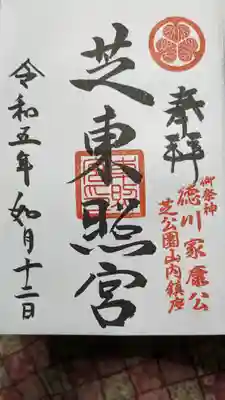 奉拝
御祭神
徳川家康公
芝公園山内鎮座
芝東照宮
令和五年 如月十二日